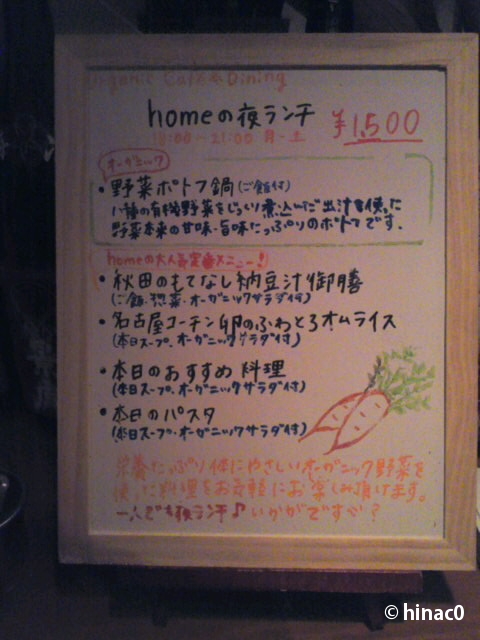 Organic Cafe & Dining
homeの夜ランチ ¥1,500
18:00-21:00 月-土
オーガニック
・野菜ポトフ鍋(ご飯付)
種の有機野菜をじっくり煮込んだ出汁を使った
野菜本来の甘味・旨味たっぷりのポトフです.
homeの大人気定番メニュー!
・秋田のもてなし納豆汁御膳
(ご飯・惣菜・オーガニックサラダ付)
・名古屋コーチン卵のふわとろオムライス
(本日スープ.オーガニックサラダ付)
・本日のおすすめ料理
(本日スープ.オーガニックサラダ付)
・本日のパスタ
(本日スープ.オーガニックサラダ付)
栄養たっぷり体にやさしいオーガニック野菜を
使った料理をお気軽にお楽しみ頂けます。
一人でも夜ランチ♪いかがですか?
© hinac0